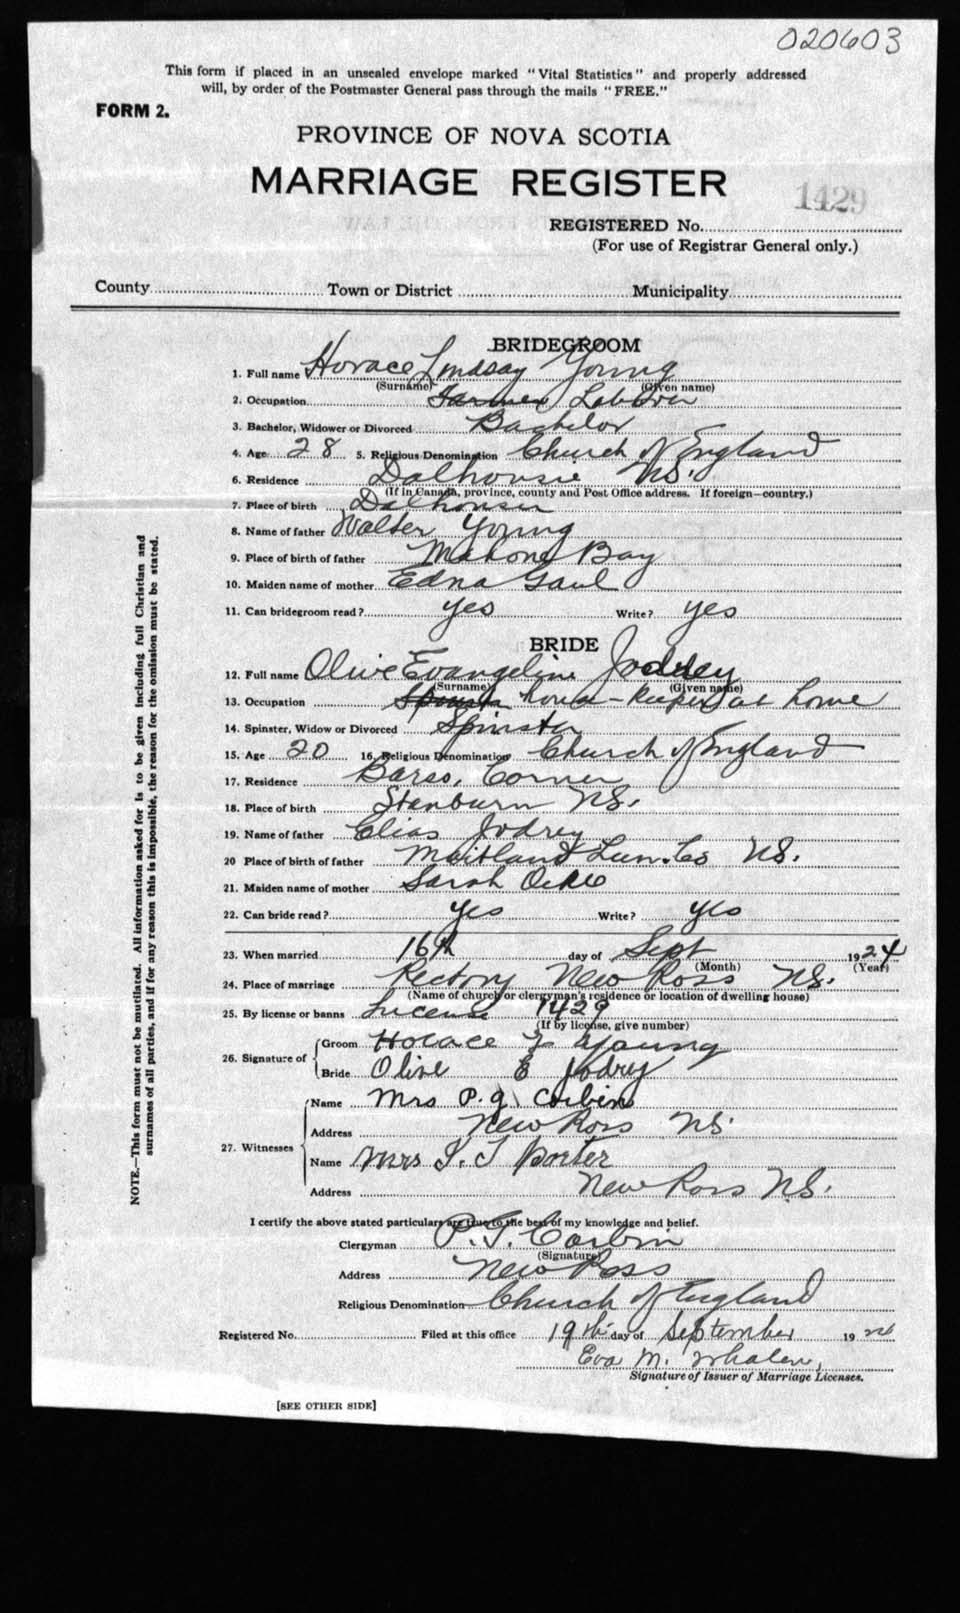 020603
This form if placed in an unsealed envelope marked "Vital Statistics" and properly addressed
will, by order of the Postmaster General pass through the mails "FREE."
FORM 2.
PROVINCE OF NOVA SCOTIA
MARRIAGE REGISTER
1429
REGISTERED No.
(For use of Registrar General only.)
County Town or District Municipality
BRIDEGROOM
1. Full name Horace Lindsay Young
(Surname) (Given name)
2. Occupation Farmer Laborer
3. Bachelor, Widower or Divorced Bachelor
4. Age 28 5. Religious Denomination Church of England
6. Residence Dalhousie NS.
(If in Canada, province, county and Post Office address. If foreign—country.)
7. Place of birth Dalhousie
8. Name of father Walter Young
9. Place of birth of father Mahone Bay
10. Maiden name of mother Edna Gaul
11. Can bridegroom read? yes Write? yes
BRIDE
12. Full name Olive Evangeline Jodrey
(Surname) (Given name)
13. Occupation Spinster house-keeper at home
14. Spinster, Widow or Divorced Spinster
15. Age 20 16. Religious Denomination Church of England
17. Residence Barss, Corner
18. Place of birth Stanburn NS.
19. Name of father Elias Jodrey
20 Place of birth of father Maitland Lun. Co NS.
21. Maiden name of mother Sarah
22. Can bride read? yes Write? yes
23. When married 16th day of Sept 1924
(Month) (Year)
24. Place of marriage Rectory New Ross NS.
(Name of church or clergyman's residence or location of dwelling house)
25. By license or banns License 1429
(If by license, give number)
26. Signature of Groom Horace L Young
Bride Olive E Jodry
27. Witnesses Name Mrs P. J. Corbin
Address New Ross NS.
Name Mrs I. T Porter
Address New Ross N.S.
I certify the above stated particulars are true to the best of my knowledge and belief.
Clergyman P. J. Corbin
(Signature)
Address New Ross
Religious Denomination Church of England
Registered No. Filed at this office 19th day of September 1924
Eva M. Whalen,
Signature of Issuer of Marriage Licenses.
[SEE OTHER SIDE]
NOTE.—This form must not be mutilated. All information asked for is to be given including full Christian and
surnames of all parties, and if for any reason this is impossible, the reason for the omission must be stated.